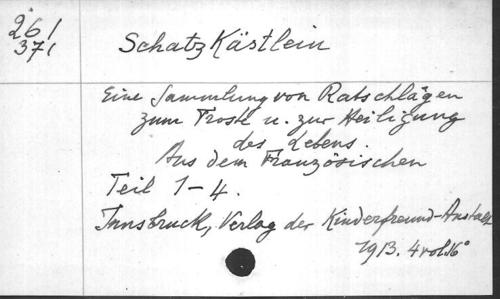 261
371
SchatzKästlein
Eine Sammlung von Ratschlägen
zum Trost u. zur Heiligung
des Lebens.
Aus dem Französischen
Teil 1-4.
Innsbruck, Verlag der Kinderfreund-Anstalt
1913. 4 vol. 16°